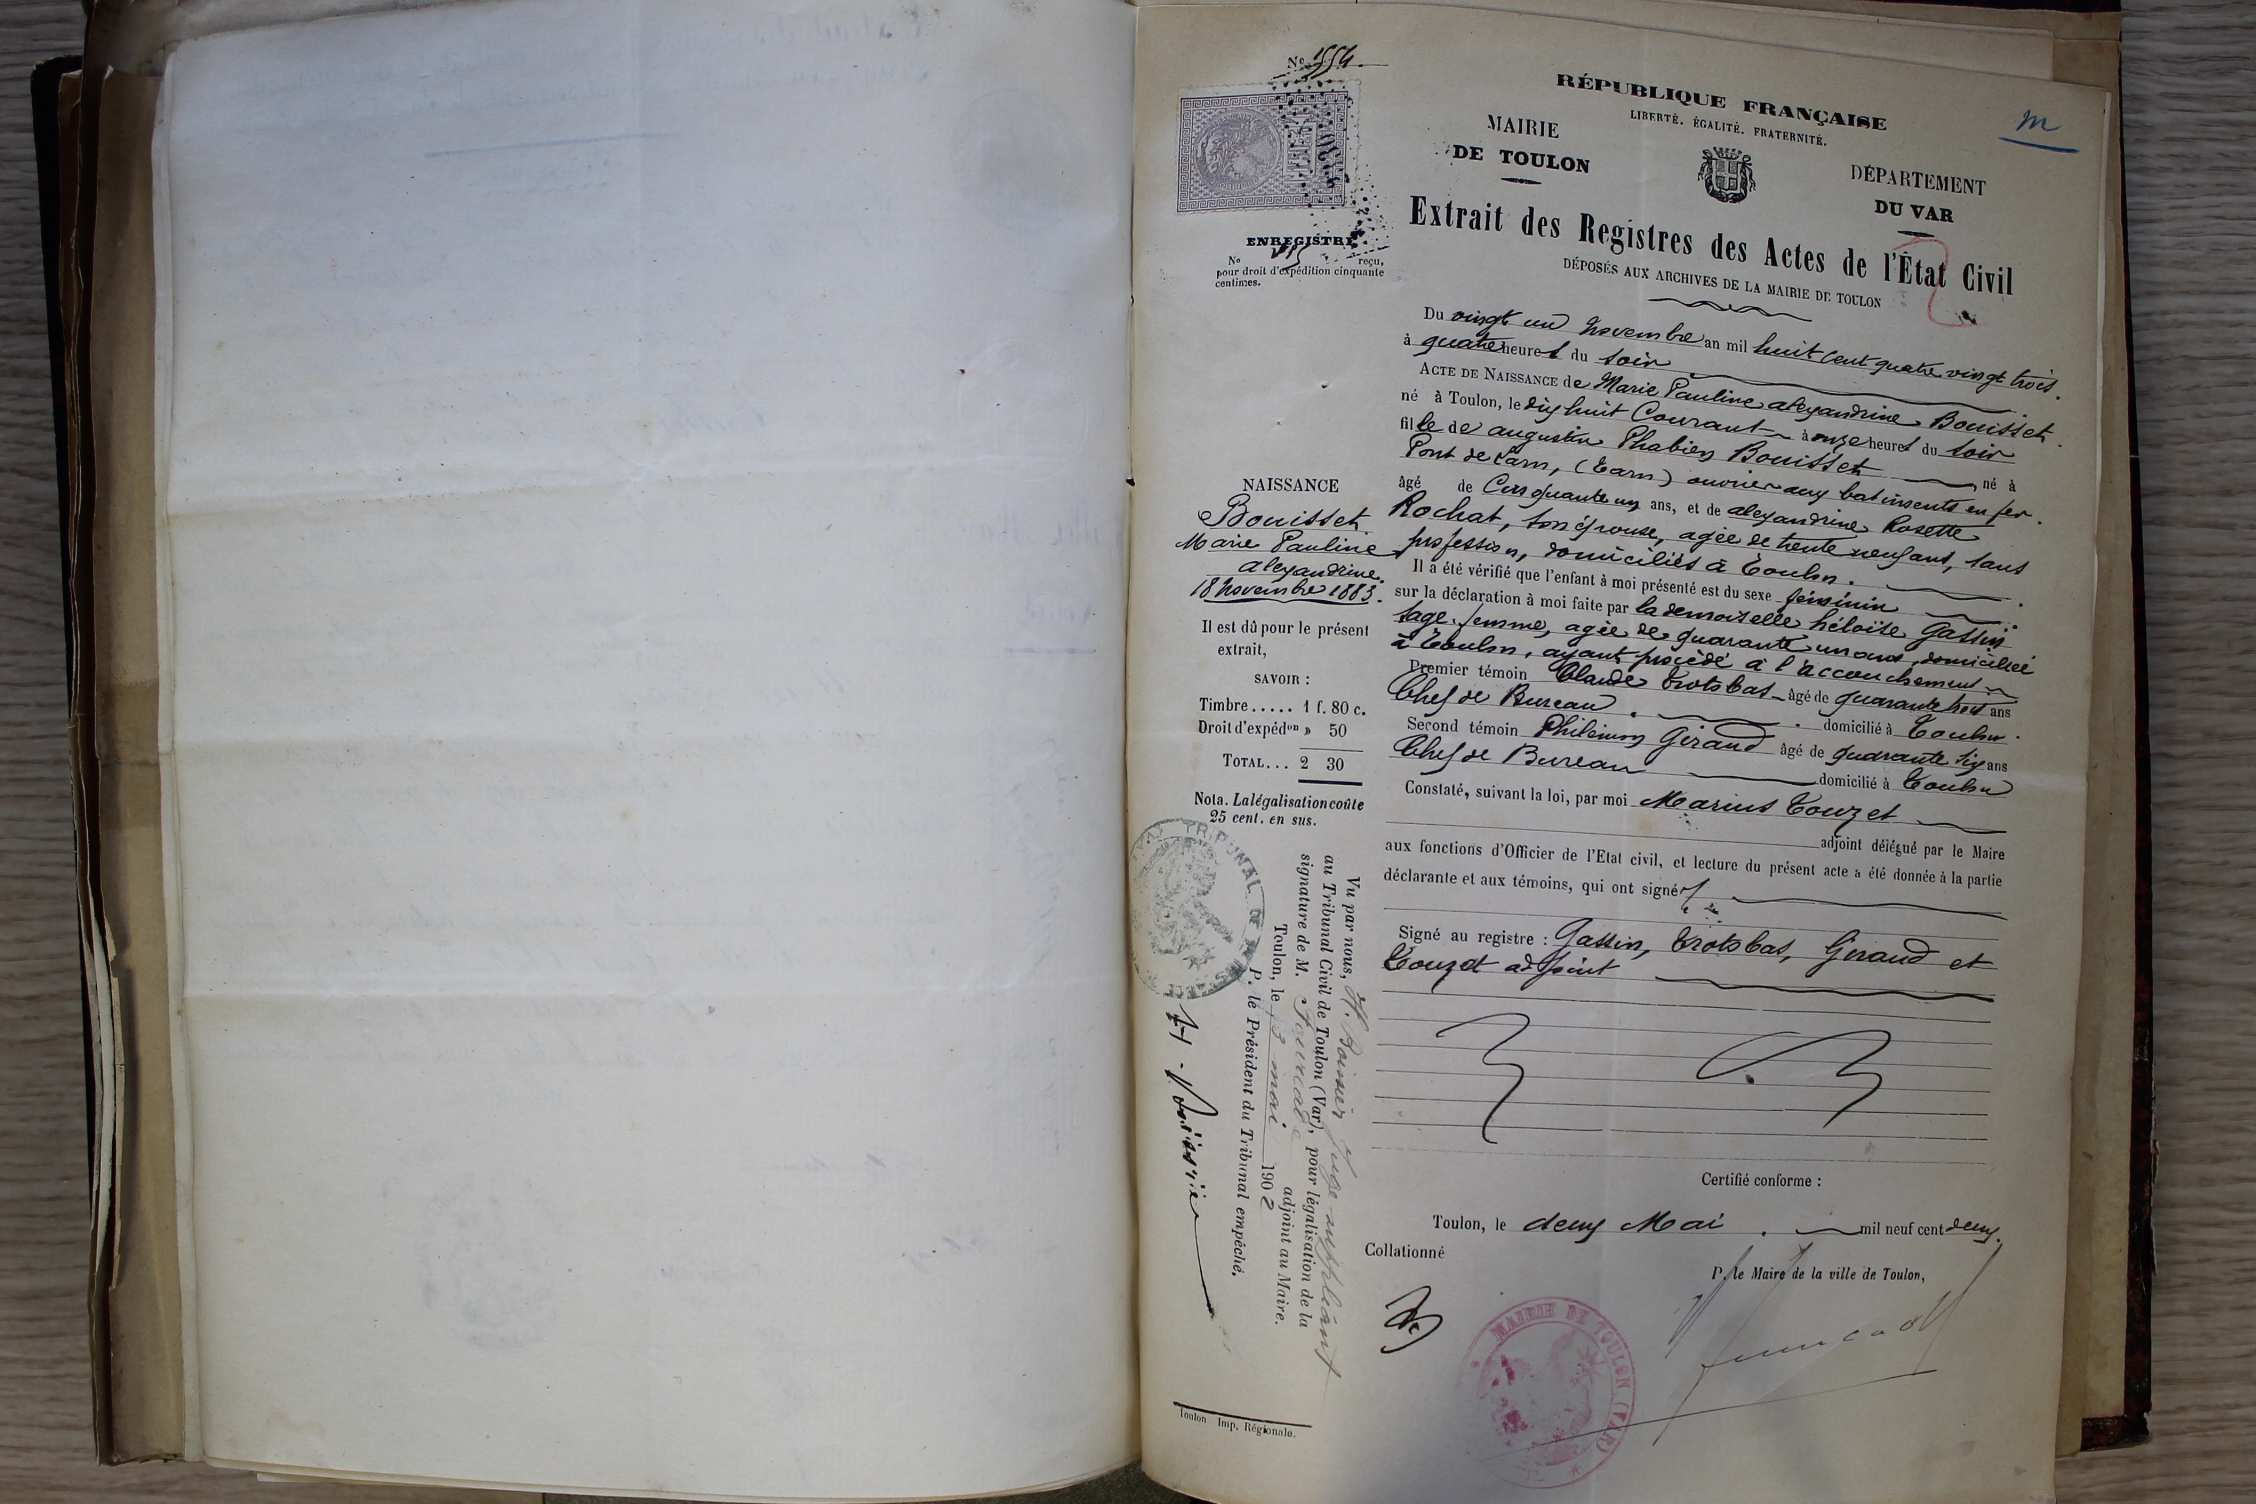 Nº 554.
RÉPUBLIQUE FRANÇAISE
LIBERTÉ. ÉGALITÉ. FRATERNITÉ.
m
MAIRIE
DE TOULON
DÉPARTEMENT
DU VAR
Extrait des Registres des Actes de l'État Civil
DÉPOSÉS AUX ARCHIVES DE LA MAIRIE DE TOULON
ENREGISTRÉ
Nº reçu,
pour droit d'expédition cinquante
centimes.
Du vingt un Novembre an mil huit cent quatre vingt trois.
à quatre heures du soir
ACTE DE NAISSANCE de Marie Pauline alexandrine Bouisset.
né à Toulon, le dix huit Courant à onze heures du soir
fille de augustin Phabien Bouisset né à
Pont de Larn, (Tarn) ouvrier aux batiments en fer.
âgé de Cinquante un ans, et de alexandrine Rosette
Rochat, son épouse, agée de trente neuf ans, sans
profession, domiciliés à Toulon.
Il a été vérifié que l'enfant à moi présenté est du sexe féminin
sur la déclaration à moi faite par la demoiselle héloïse Gassin
sage-femme, agée de quarante un ans, domiciliée
à Toulon, ayant procédé à l'accouchement
Premier témoin Claude Trotobas âgé de quarante trois ans
Chef de Bureau. domicilié à Toulon.
Second témoin Philémon Giraud âgé de quarante six ans
Chef de Bureau domicilié à Toulon
Constaté, suivant la loi, par moi Marius Touzet
adjoint délégué par le Maire
aux fonctions d'Officier de l'Etat civil, et lecture du présent acte a été donnée à la partie
déclarante et aux témoins, qui ont signé
Signé au registre : Gassin, Trotobas, Giraud et
Touzet adjoint
Certifié conforme :
Toulon, le deux Mai. mil neuf cent deux.
Collationné
P. le Maire de la ville de Toulon,
MAIRIE DE TOULON (VAR)
NAISSANCE
Bouisset
Marie Pauline
alexandrine.
18 Novembre 1883.
Il est dû pour le présent
extrait,
SAVOIR :
Timbre ..... 1 f. 80 c.
Droit d'expédon » 50
TOTAL... 2 30
Nota. La légalisation coûte
25 cent. en sus.
TRIBUNAL DE
Vu par nous, H. Boissier Juge suppléant
au Tribunal Civil de Toulon (Var), pour légalisation de la
signature de M. Fourcade adjoint au Maire.
Toulon, le 3 mai 1902
P. le Président du Tribunal empêché.
H. Boissier
Toulon Imp. Régionale.